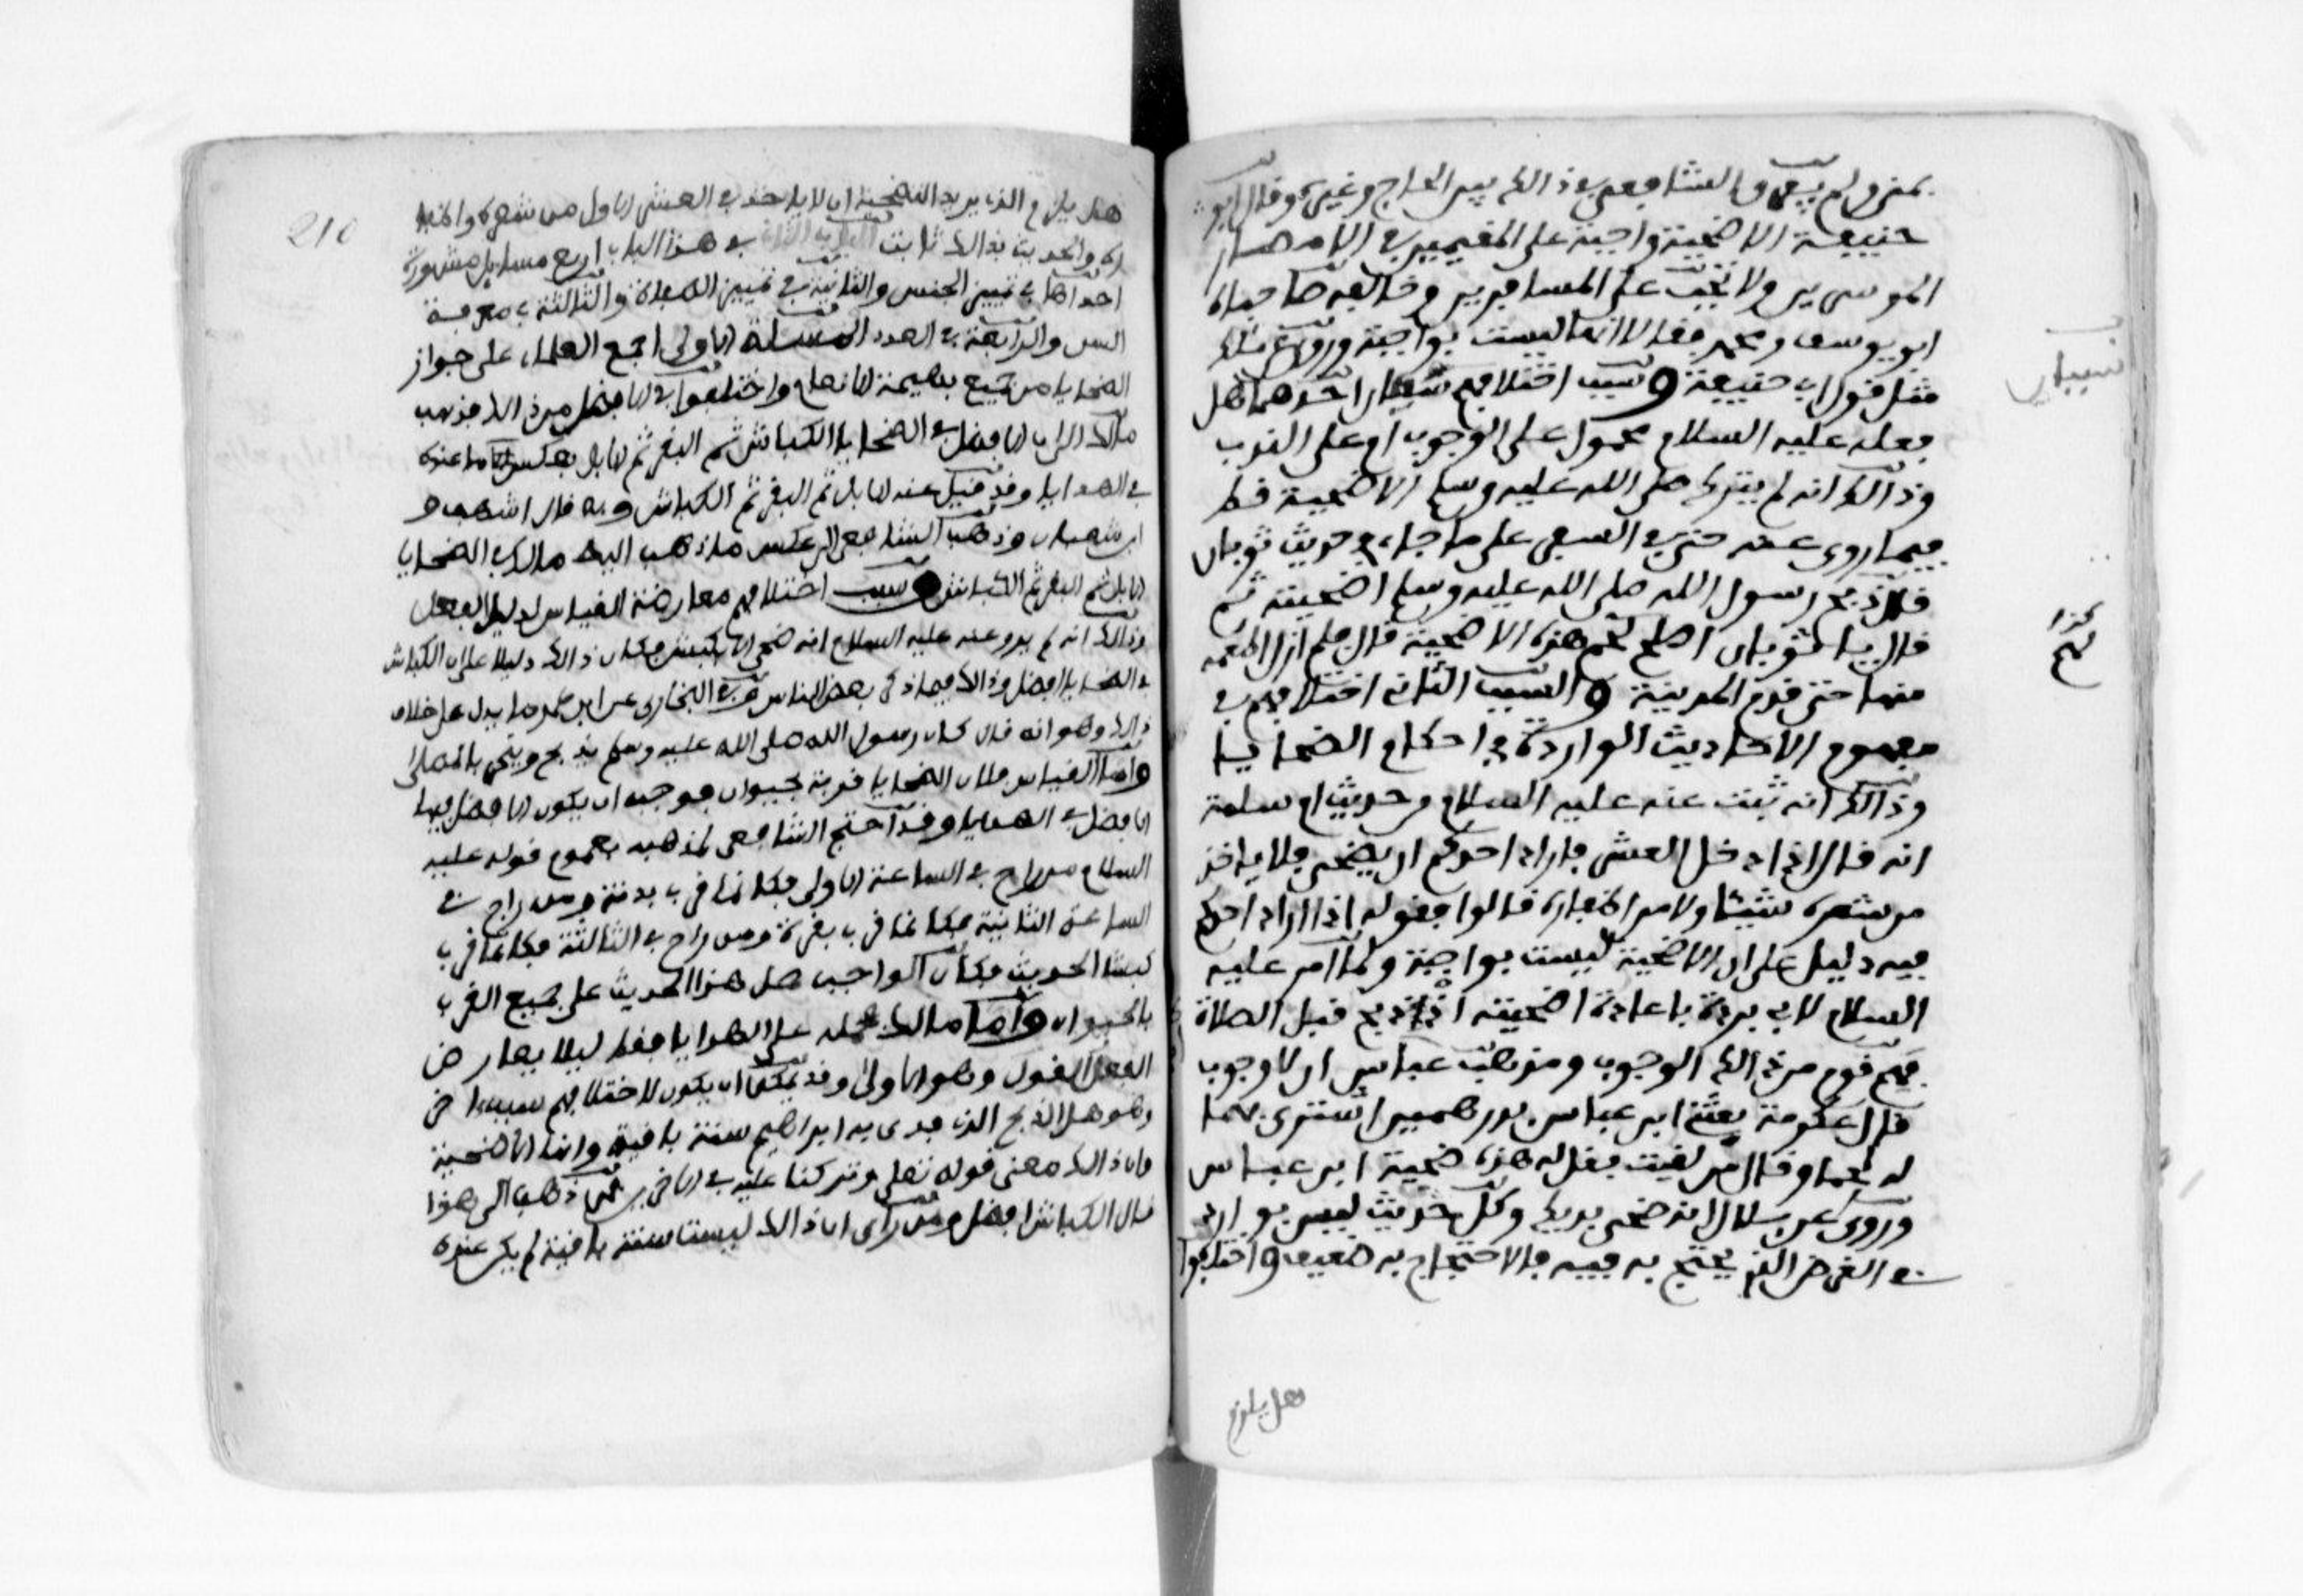 بمنى ولم يفرق الشافعي في ذالك بين الحاج وغيره وقال ابو
حنيفة الاضحية واجبة على المقيمين في الامصار
الموسرين ولا تجب على المسافرين وخالفه صاحباه
ابو يوسف ومحمد فقالا انها ليست بواجبة وروي عن مالك
مثل قول ابي حنيفة وسبب اختلافهم شيئان احدهما هل
فعله عليه السلام محمول على الوجوب او على الندب
وذالك انه لم يترك صلى الله عليه وسلم الاضحية قط
فيما روي عنه حتى في السفر على ما جاء في حديث ثوبان
قال ذبح رسول الله صلى الله عليه وسلم اضحيته ثم
قال يا ثوبان اصلح لحم هذه الاضحية قال فلم ازل اطعمه
منها حتى قدم المدينة والسبب الثاني اختلافهم في
مفهوم الاحاديث الواردة في احكام الضحايا
وذالك انه ثبت عنه عليه السلام من حديث ام سلمة
انه قال اذا دخل العشر فاراد احدكم ان يضحي فلا ياخذ
من شعره شيئا ولا من اظفاره قالوا فقوله اذا اراد احدكم
فيه دليل على ان الاضحية ليست بواجبة ولما امر عليه
السلام لابي بردة باعادة اضحيته اذ ذبح قبل الصلاة
فهم قوم من ذالك الوجوب ومذهب ابن عباس ان لا وجوب
قال عكرمة بعثني ابن عباس بدرهمين اشتري بهما
له لحما وقال من لقيت فقل له هذه ضحية ابن عباس
وروي عن بلال انه ضحى بديك وكل حديث ليس بوارد
في الغرض الذي يحتج به فيه فالاحتجاج به ضعيف واختلفوا
هل يلزم
شيئان
كذا
لحم
210
هل يلزم الذي يريد التضحية ان لا ياخذ في العشر الاول من شعره واظفا
ره والحديث بذالك ثابت الباب الثاني في هذا الباب اربع مسايل مشهورة
احداها في تمييز الجنس والثانية في تمييز الصفات والثالثة في معرفة
السن والرابعة في العدد المسئلة الاولى اجمع العلماء على جواز
الضحايا من جميع بهيمة الانعام واختلفوا في الافضل من ذالك فذهب
مالك الى ان الافضل في الضحايا الكباش ثم البقر ثم الابل بعكس الامر عنده
في الهدايا وقد قيل عنه الابل ثم البقر ثم الكباش وبه قال اشهب و
ابن شعبان وذهب الشافعي الى عكس ما ذهب اليه مالك في الضحايا
الابل ثم البقر ثم الكباش وسبب اختلافهم معارضة القياس لدليل الفعل
وذالك انه لم يرو عنه عليه السلام انه ضحى الا بكبش فكان ذالك دليلا على ان الكباش
في الضحايا افضل وذالك فيما ذكر بعض الناس وفي البخاري عن ابن عمر ما يدل على خلاف
ذالك وهو انه قال كان رسول الله صلى الله عليه وسلم يذبح وينحر بالمصلى
واما القياس فلان الضحايا قربة بحيوان فوجب ان يكون الافضل فيها
الافضل في الهدايا وقد احتج الشافعي لمذهبه بعموم قوله عليه
السلام من راح في الساعة الاولى فكانما قرب بدنة ومن راح في
الساعة الثانية فكانما قرب بقرة ومن راح في الثالثة فكانما قرب
كبشا الحديث فكان الواجب حمل هذا الحديث على جميع القرب
بالحيوان واما مالك فحمله على الهدايا فقط ليلا يعارض
الفعل القول وهو الاولى وقد يمكن ان يكون لاختلافهم سبب اخر
وهو هل الذبح الذي فدى به ابراهيم سنة باقية وانها الاضحية
وان ذالك معنى قوله تعلى وتركنا عليه في الاخرين فمن ذهب الى هذا
قال الكباش افضل ومن راى ان ذالك ليست سنة باقية لم يكن عنده